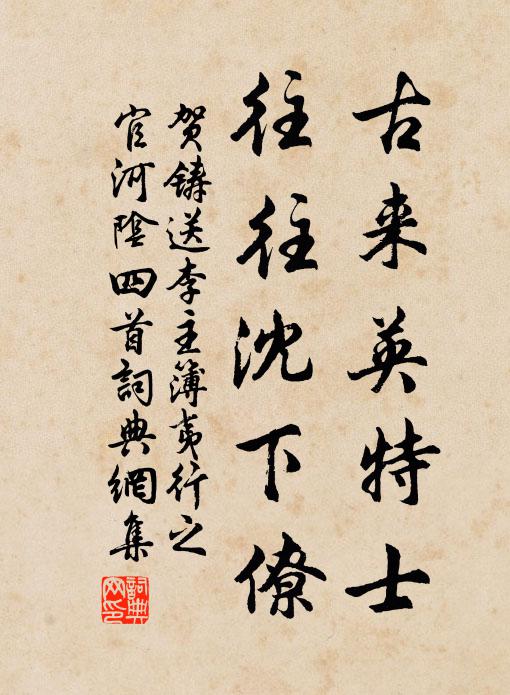 古来英特士
往往沈下僚
贺鑄送李主簿夷行之
官河陰四首詞典網集
詞典网印